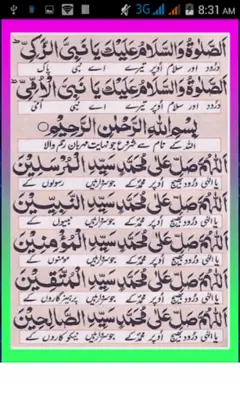 3G 8:31 AM
اَلصَّلٰوةُ وَالسَّلَامُ عَلَيْكَ يَا نَبِيَّ الزَّكِيِّ
درود اور سلام اوپر تیرے اے نبی پاک
اَلصَّلٰوةُ وَالسَّلَامُ عَلَيْكَ يَا نَبِيَّ
درود اور سلام اوپر تیرے اے نبی
بِسْمِ اللهِ الرَّحْمٰنِ الرَّحِيْمِ
اللہ کے نام سے شروع جو نہایت مہربان رحم والا
اَللّٰهُمَّ صَلِّ عَلٰى مُحَمَّدٍ سَيِّدِ الْمُرْسَلِيْنَ
یا الٰہی درود بھیج اوپر محمد کے جو سردار ہیں رسولوں کے
اَللّٰهُمَّ صَلِّ عَلٰى مُحَمَّدٍ سَيِّدِ النَّبِيِّيْنَ
یا الٰہی درود بھیج اوپر محمد کے جو سردار ہیں نبیوں کے
اَللّٰهُمَّ صَلِّ عَلٰى مُحَمَّدٍ سَيِّدِ الْمُؤْمِنِيْنَ
یا الٰہی درود بھیج اوپر محمد کے جو سردار ہیں مومنوں کے
اَللّٰهُمَّ صَلِّ عَلٰى مُحَمَّدٍ سَيِّدِ الْمُتَّقِيْنَ
یا الٰہی درود بھیج اوپر محمد کے جو سردار ہیں پرہیزگاروں کے
اَللّٰهُمَّ صَلِّ عَلٰى مُحَمَّدٍ سَيِّدِ الصَّالِحِيْنَ
یا الٰہی درود بھیج اوپر محمد کے جو سردار ہیں نیکوکاروں کے